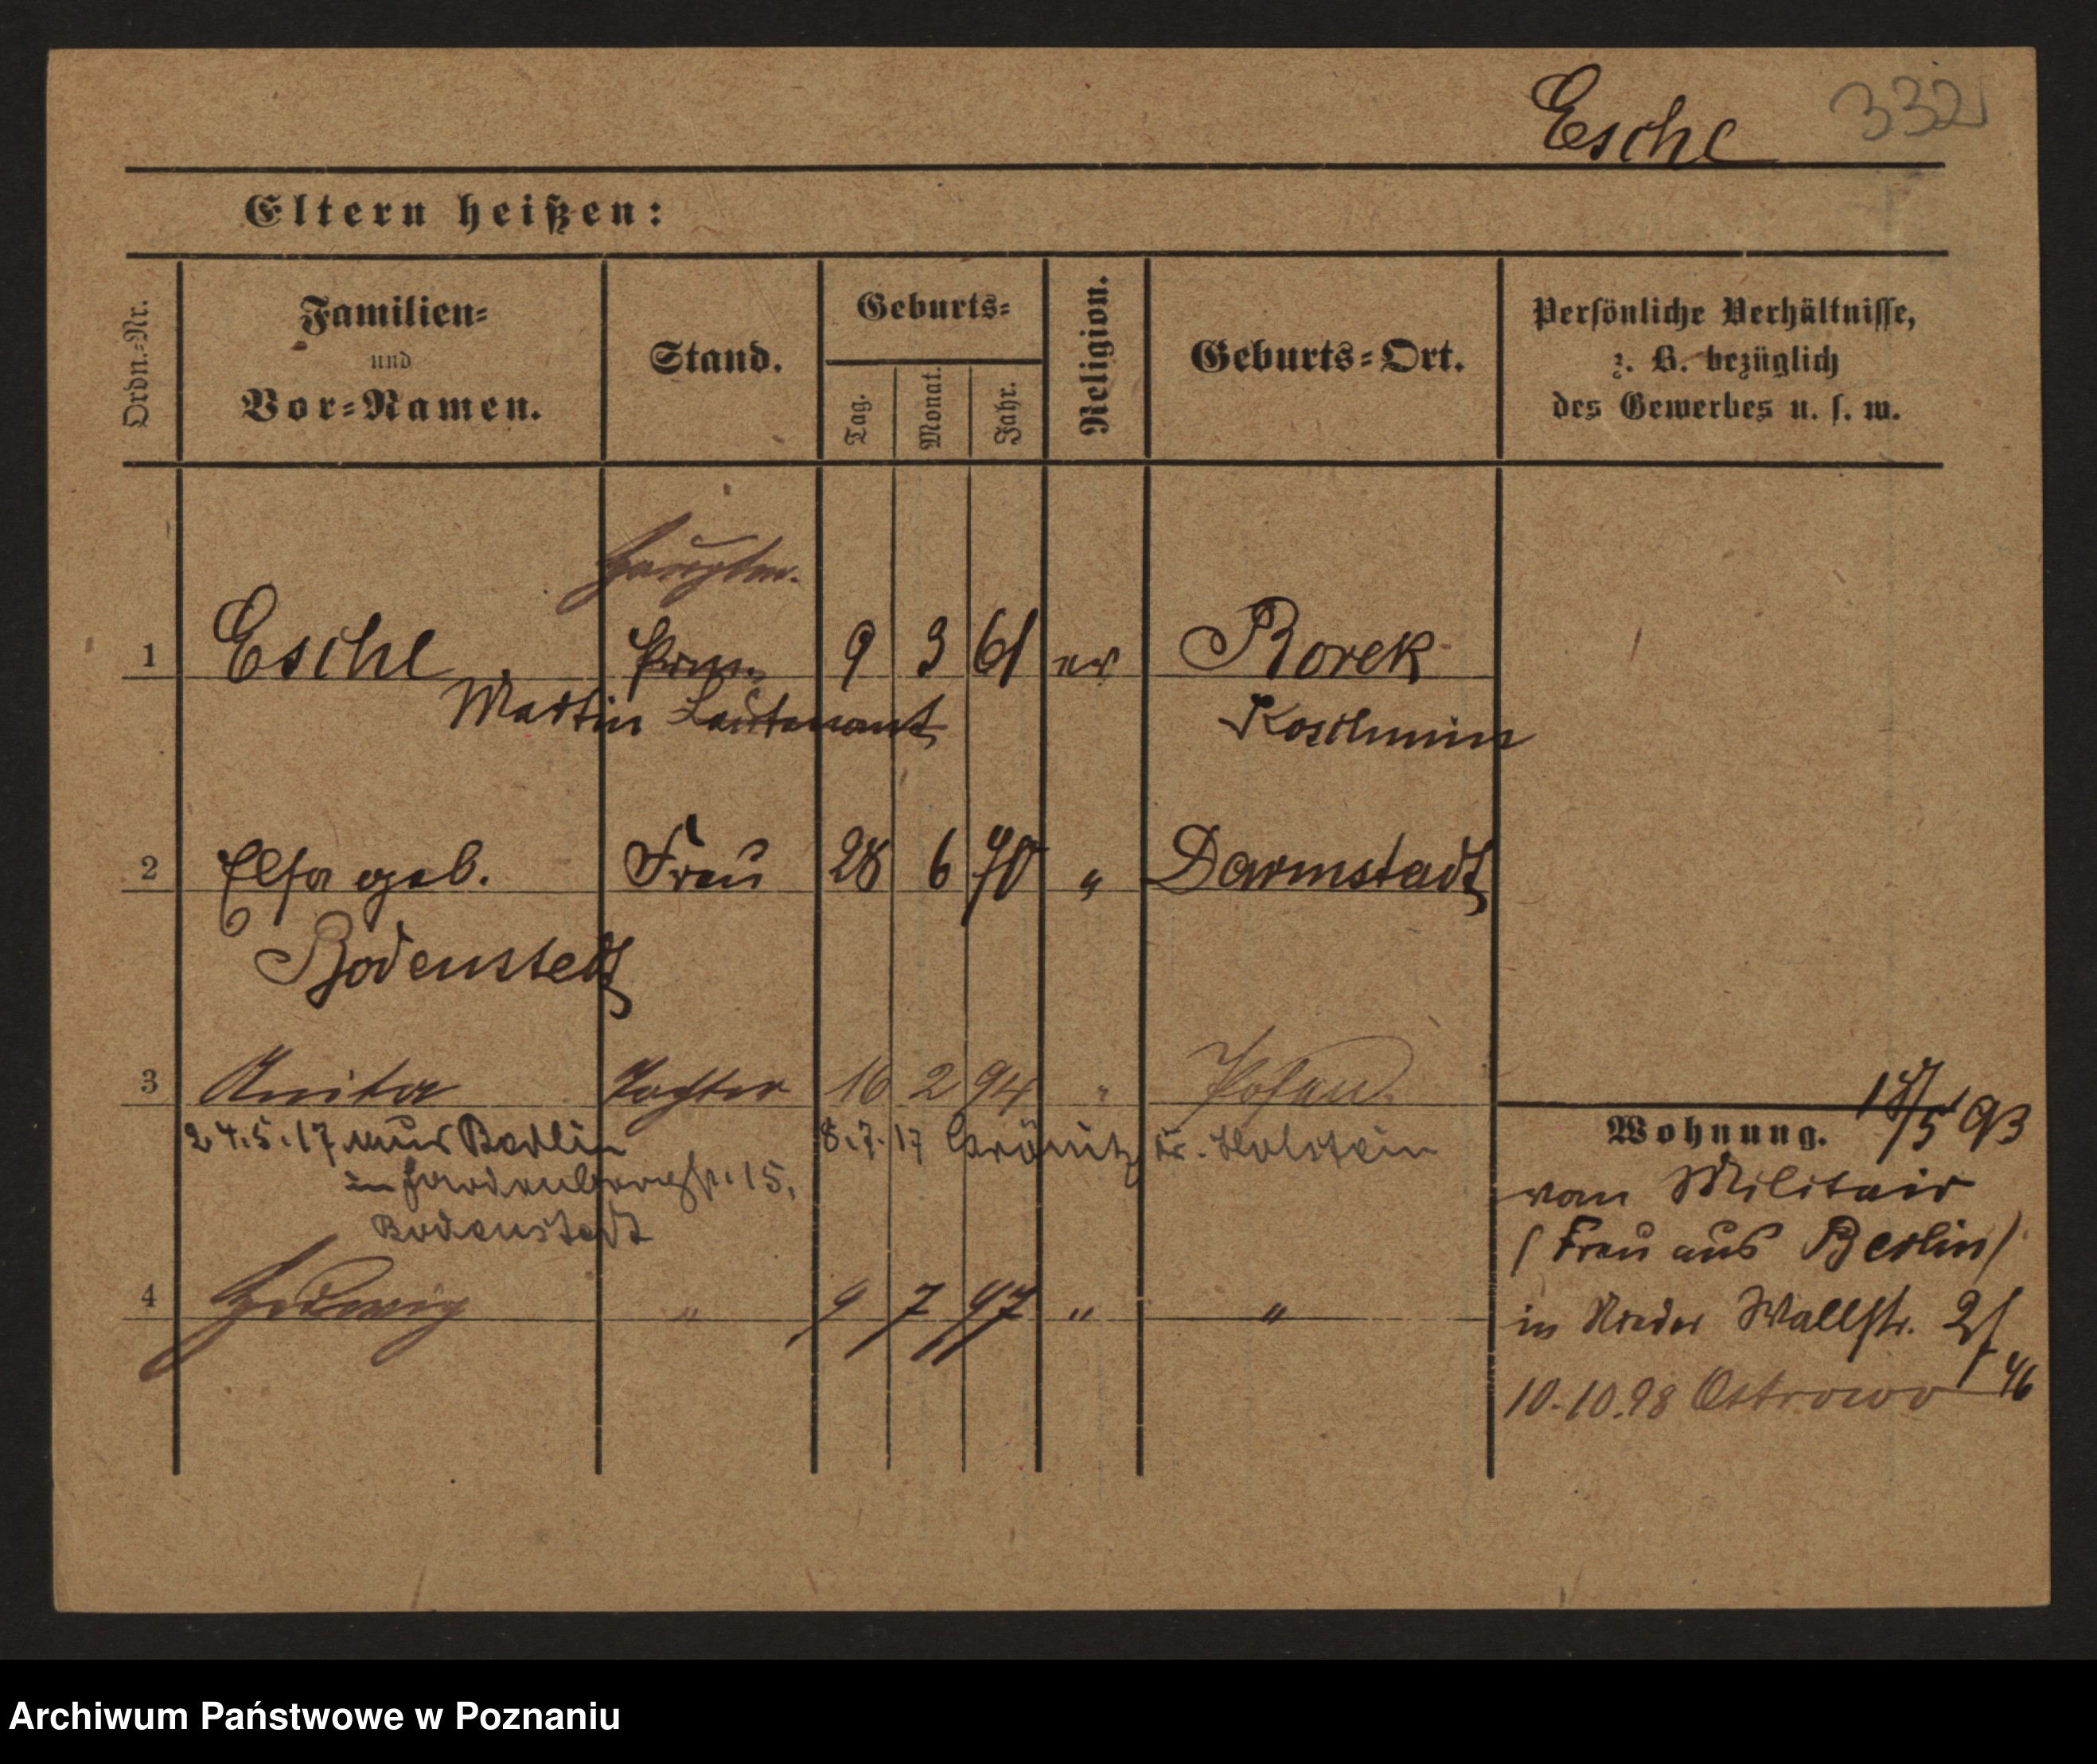 Esche 332
Eltern heißen:
Ordn.=Nr.
Familien=
und
Vor=Namen.
Stand.
Geburts=
Tag.
Monat.
Jahr.
Religion.
Geburts=Ort.
Persönliche Verhältnisse,
z. B. bezüglich
des Gewerbes u. s. w.
Hauptm.
1 Esche Prem. 9 3 61 ev Borek
Martin Lieutenant Koschmin
2 Elsa geb. Frau 28 6 70 " Darmstadt
Bodenstedt
3 Anita Tochter 16 2 94 " Posen
24.5.17 aus Berlin 8.7.17 Grömitz Kr. Holstein
in Hardenbergstr. 15,
Bodenstedt
4 Hedwig " 9 7 97 " "
Wohnung. 18/5 93
vom Militair
(Frau aus Berlin)
in Nieder Wallstr. 2/
46
10.10.98 Ostrowo
Archiwum Państwowe w Poznaniu